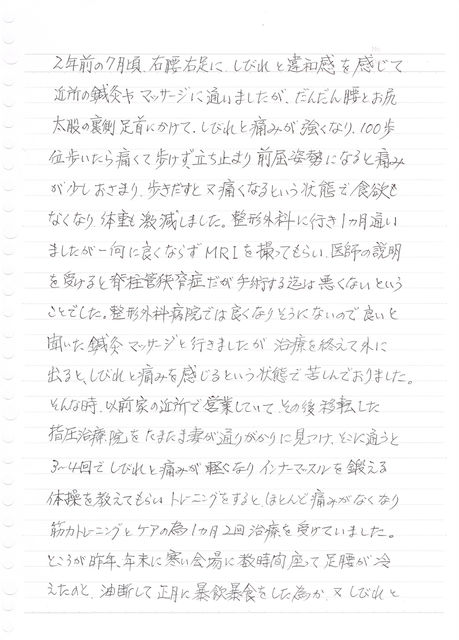 2年前の7月頃、右腰右足に、しびれと違和感を感じて
近所の鍼灸やマッサージに通いましたが、だんだん腰とお尻
太股の裏側足首にかけて、しびれと痛みが強くなり、100歩
位歩いたら痛くて歩けず立ち止まり前屈姿勢になると痛み
が少しおさまり、歩きだすと又痛くなるという状態で食欲も
なくなり体重も激減しました。整形外科に行き1ヵ月通い
ましたが一向に良くならずMRIを撮ってもらい、医師の説明
を受けると脊柱管狭窄症だが手術する迄は悪くないという
ことでした。整形外科病院では良くなりそうにないので良いと
聞いた鍼灸マッサージと行きましたが治療を終えて外に
出ると、しびれと痛みを感じるという状態で苦しんでおりました。
そんな時、以前家の近所で営業していて、その後移転した
指圧治療院をたまたま妻が通りがかりに見つけ、そこに通うと
3〜4回でしびれと痛みが軽くなりインナーマスルを鍛える
体操を教えてもらいトレーニングをすると、ほとんど痛みがなくなり
筋力トレーニングとケアの為1ヵ月2回治療を受けていました。
ところが昨年、年末に寒い会場に数時間座って足腰が冷
えたのと、油断して正月に暴飲暴食をした為か、又しびれと